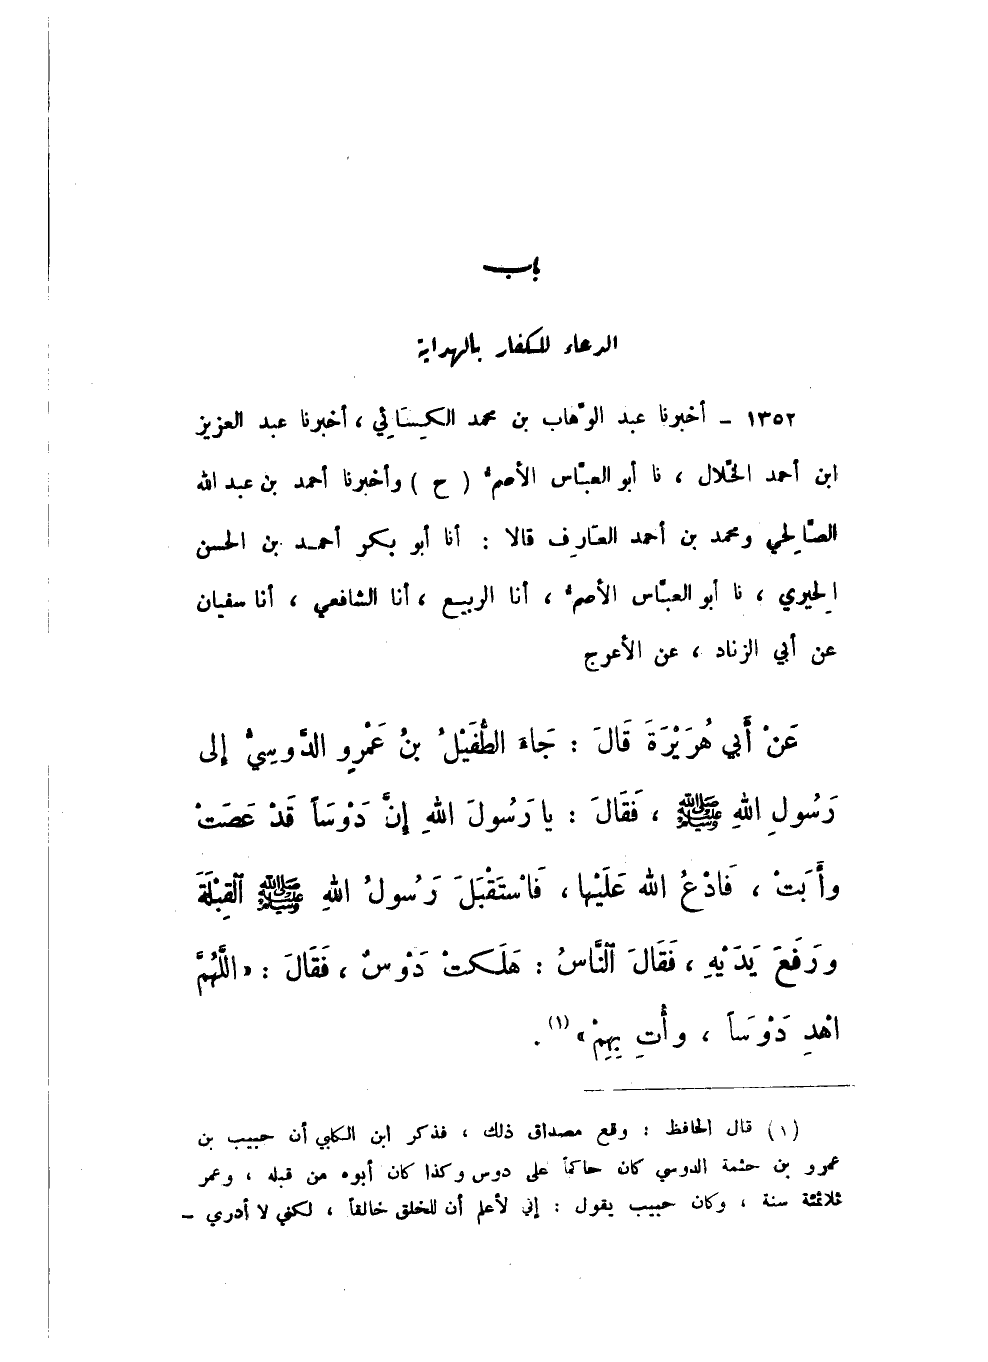 باب
الدعاء للكفار بالهداية
١٣٥٢ - أخبرنا عبد الوهّاب بن محمد الكِسَائي ، أخبرنا عبد العزيز
ابن أحمد الخلّال ، نا أبو العبّاس الأصمُّ ( ح ) وأخبرنا أحمد بن عبد الله
الصّالحي ومحمد بن أحمد العارف قالا : أنا أبو بكر أحمد بن الحسن
الحِيري ، نا أبو العبّاس الأصمُّ ، أنا الربيع ، أنا الشافعي ، أنا سفيان
عن أبي الزناد ، عن الأعرج
عَنْ أَبي هُرَيْرَةَ قَالَ : جَاءَ الطُّفَيْلُ بنُ عَمْرٍو الدَّوسِيُّ إلى
رَسُولِ اللهِ ﷺ ، فَقَالَ : يا رَسُولَ اللهِ إِنَّ دَوْسَاً قَدْ عَصَتْ
وأَبَتْ ، فَادْعُ الله عَلَيْها ، فَاسْتَقْبَلَ رَسُولُ اللهِ ﷺ القِبْلَةَ
ورَفَعَ يَدَيْهِ ، فَقَالَ النَّاسُ : هَلَكَتْ دَوْسٌ ، فَقَالَ : « اللَّهُمَّ
اهْدِ دَوْسَاً ، وأْتِ بِهِمْ » (١) .
(١) قال الحافظ : وقع مصداق ذلك ، فذكر ابن الكلبي أن حبيب بن
عمرو بن حثمة الدوسي كان حاكماً على دوس وكذا كان أبوه من قبله ، وعمر
ثلاثمئة سنة ، وكان حبيب يقول : إني لأعلم أن للخلق خالقاً ، لكني لا أدري -